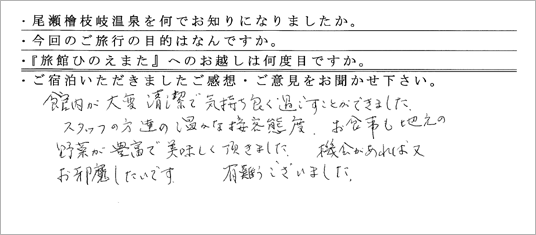 ・尾瀬檜枝岐温泉を何でお知りになりましたか。
・今回のご旅行の目的はなんですか。
・『旅館ひのえまた』へのお越しは何度目ですか。
・ご宿泊いただきましたご感想・ご意見をお聞かせ下さい。
館内が大変清潔で気持ち良く過ごすことができました。
スタッフの方達の温かな接客態度、お食事も地元の
野菜が豊富で美味しく頂きました。 機会があれば又
お邪魔したいです。 有難うございました。